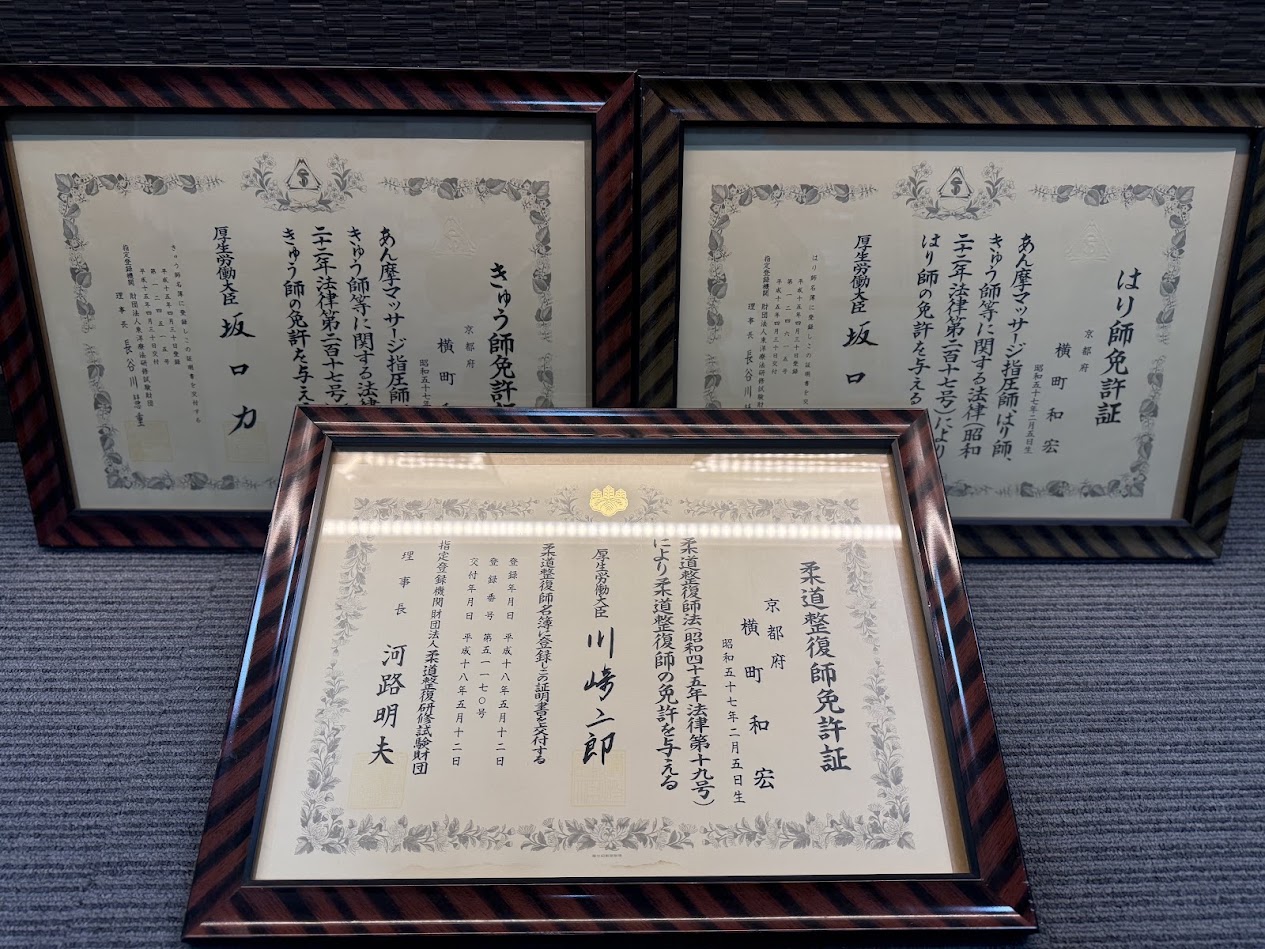 きゅう師免許
京都府
横町
昭和五十七年
あん摩マッサージ指圧師
きゅう師等に関する法律
二十二年法律第二百十七号)
きゅう師の免許を与え
厚生労働大臣 坂口力
きゅう師名簿に登録しこの証明書を交付する
平成十五年四月三十日登録
平成十五年四月三十日交付
指定登録機関 財団法人東洋療法研修試験財団
理事長 長谷川慧重
はり師免許証
京都府
横町和宏
昭和五十七年二月五日生
あん摩マッサージ指圧師、はり師、
きゅう師等に関する法律(昭和
二十二年法律第二百十七号)により
はり師の免許を与える
厚生労働大臣 坂口
はり師名簿に登録しこの証明書を交
平成十五年四月三十日登録
平成十五年四月三十日交付
指定登録機関 財団法人東洋療法研修試験財
理事長 長谷川
柔道整復師免許証
京都府
横町和宏
昭和五十七年二月五日生
柔道整復師法(昭和四十五年法律第十九号)
により柔道整復師の免許を与える
厚生労働大臣 川崎二郎
柔道整復師名簿に登録しこの証明書を交付する
登録年月日 平成十八年五月十二日
登録番号 第五一一七〇号
交付年月日 平成十八年五月十二日
指定登録機関財団法人柔道整復研修試験財団
理事長 河路明夫